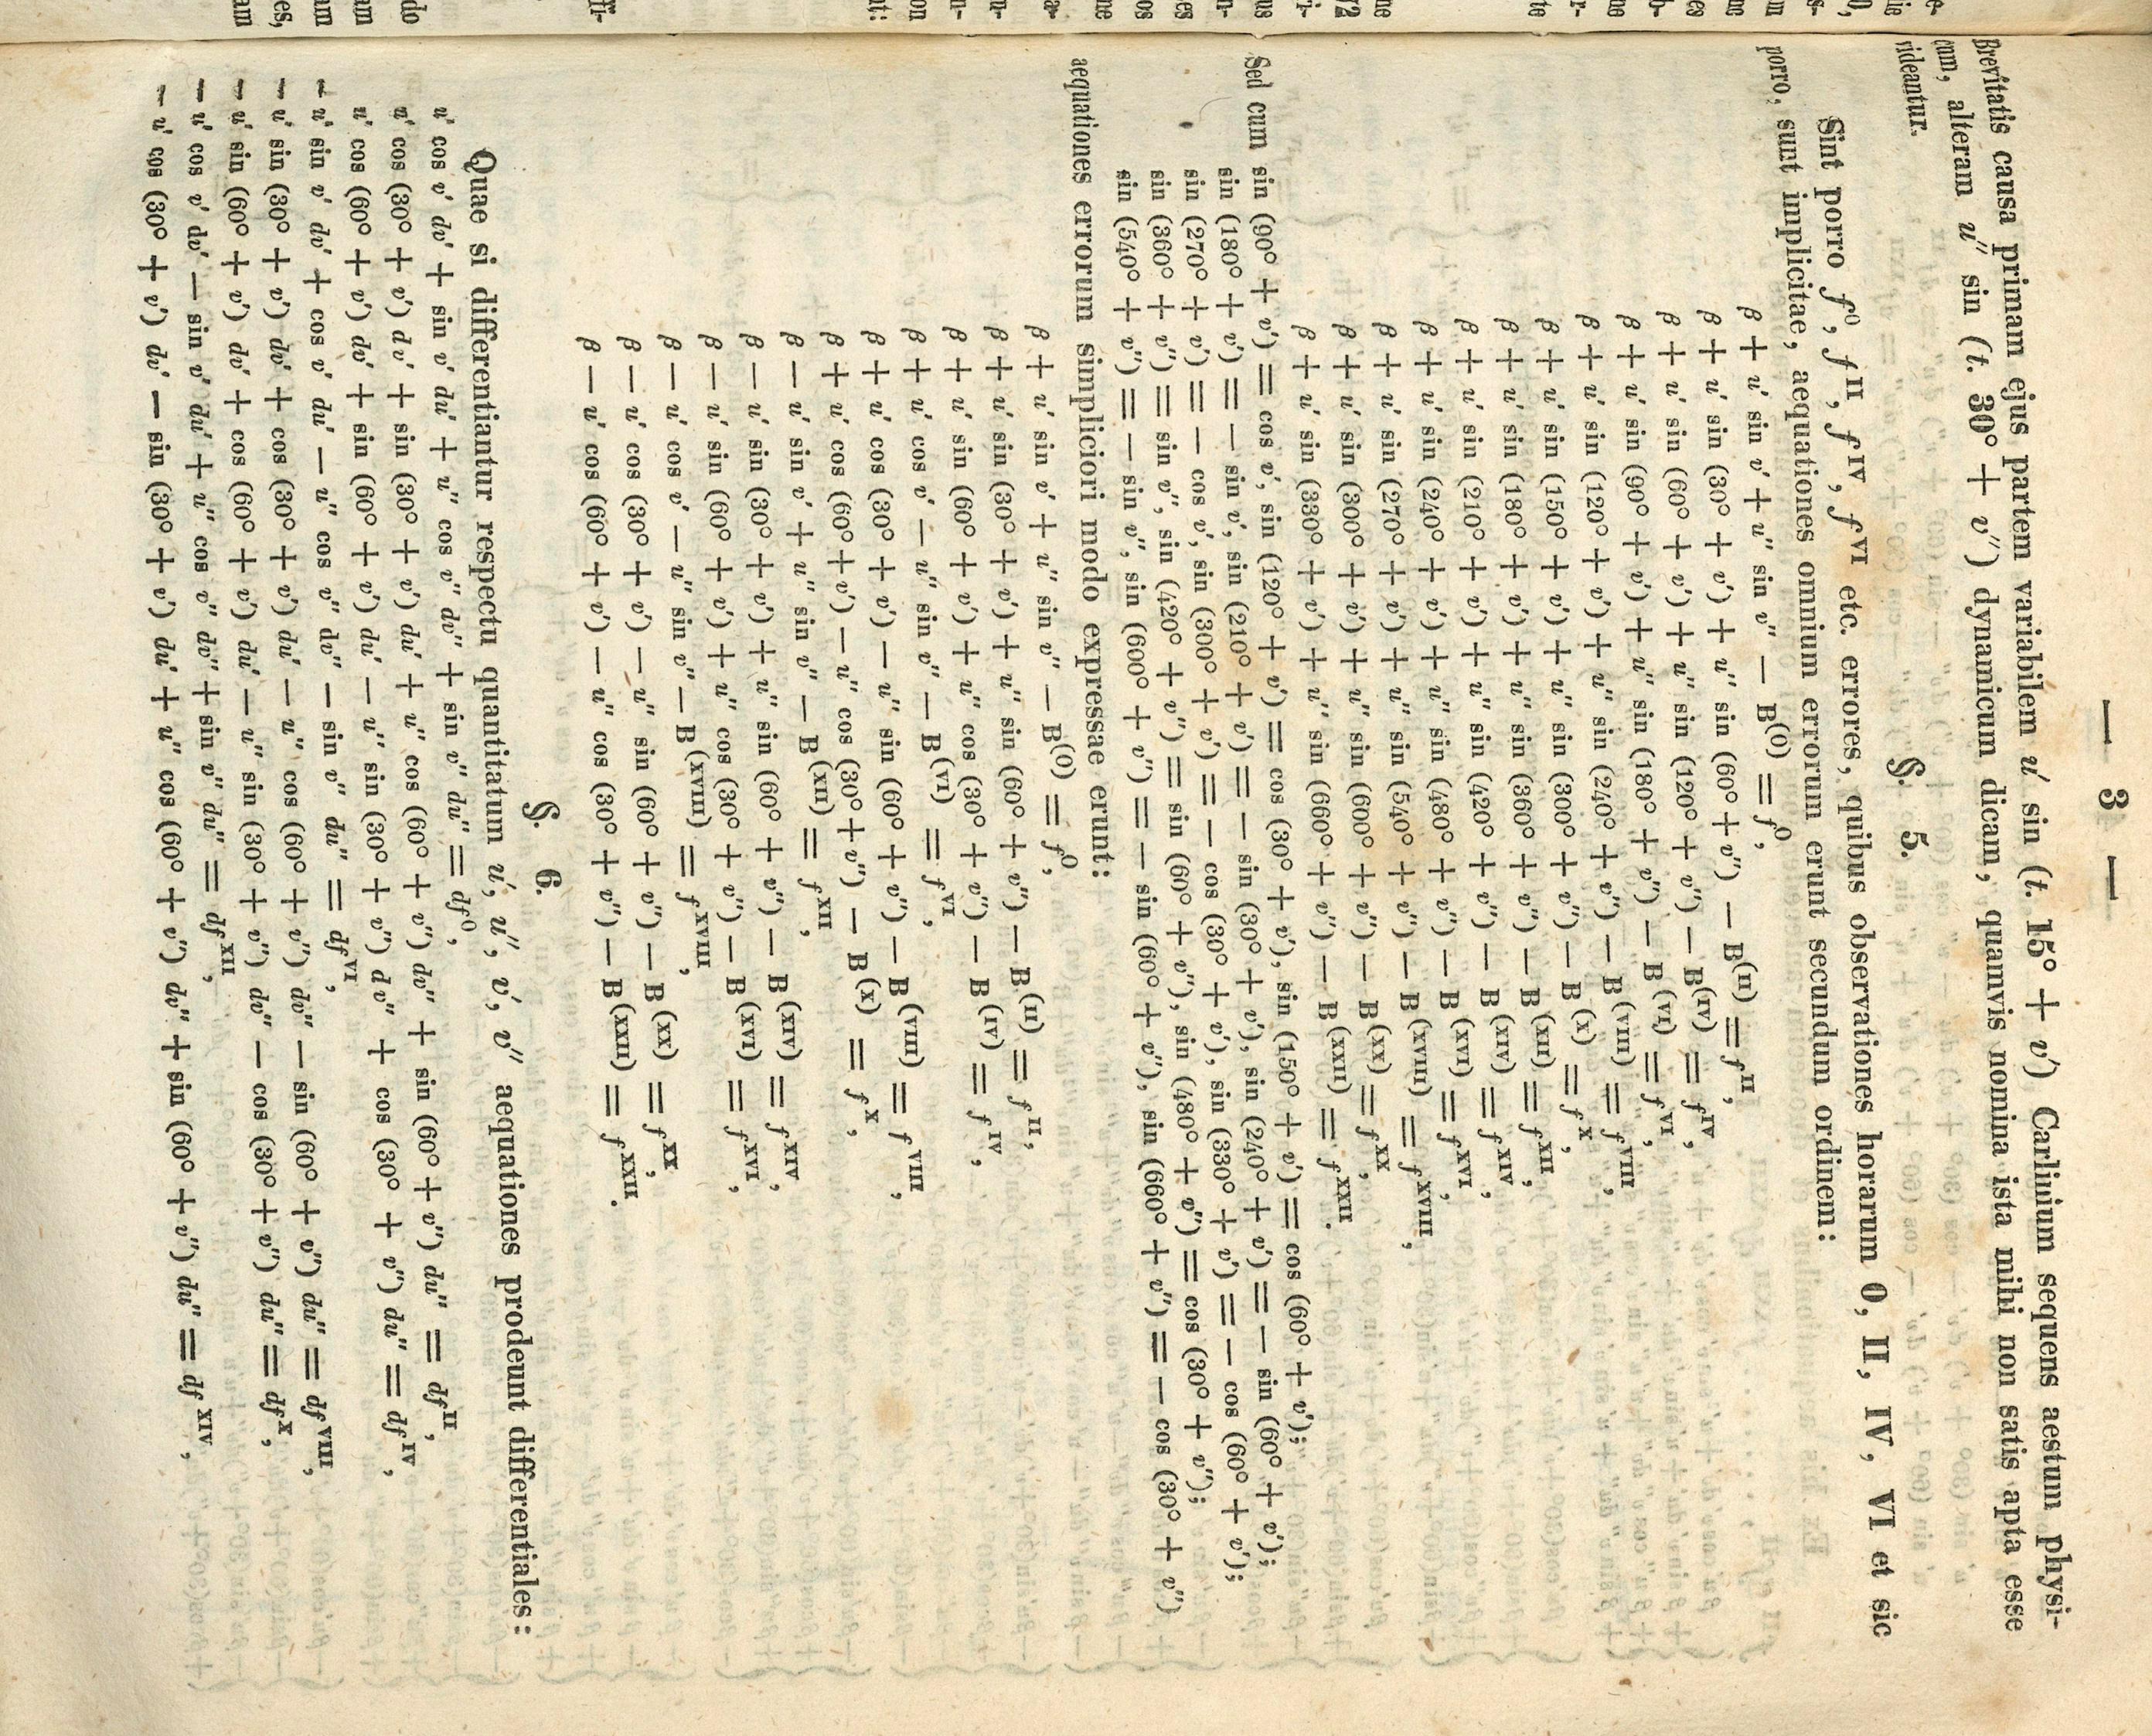 — 3 —
Brevitatis causa primam ejus partem variabilem u′ sin (t. 15° + v′) Carlinium sequens aestum physi-
cum, alteram u″ sin (t. 30° + v″) dynamicum dicam, quamvis nomina ista mihi non satis apta esse
videantur.
§. 5.
Sint porro f⁰, fᴵᴵ, fᴵⱽ, fⱽᴵ etc. errores, quibus observationes horarum 0, II, IV, VI et sic
porro, sunt implicitae, aequationes omnium errorum erunt secundum ordinem:
β + u′ sin v′ + u″ sin v″ — B(0) = f⁰,
β + u′ sin (30° + v′) + u″ sin (60° + v″) — B(II) = fᴵᴵ,
β + u′ sin (60° + v′) + u″ sin (120° + v″) — B(IV) = fᴵⱽ,
β + u′ sin (90° + v′) + u″ sin (180° + v″) — B(VI) = fⱽᴵ,
β + u′ sin (120° + v′) + u″ sin (240° + v″) — B(VIII) = fⱽᴵᴵᴵ,
β + u′ sin (150° + v′) + u″ sin (300° + v″) — B(X) = fˣ,
β + u′ sin (180° + v′) + u″ sin (360° + v″) — B(XII) = fˣᴵᴵ,
β + u′ sin (210° + v′) + u″ sin (420° + v″) — B(XIV) = fˣᴵⱽ,
β + u′ sin (240° + v′) + u″ sin (480° + v″) — B(XVI) = fˣⱽᴵ,
β + u′ sin (270° + v′) + u″ sin (540° + v″) — B(XVIII) = fˣⱽᴵᴵᴵ,
β + u′ sin (300° + v′) + u″ sin (600° + v″) — B(XX) = fˣˣ,
β + u′ sin (330° + v′) + u″ sin (660° + v″) — B(XXII) = fˣˣᴵᴵ.
Sed cum sin (90° + v′) = cos v′, sin (120° + v′) = cos (30° + v′), sin (150° + v′) = cos (60° + v′);
sin (180° + v′) = — sin v′, sin (210° + v′) = — sin (30° + v′), sin (240° + v′) = — sin (60° + v′);
sin (270° + v′) = — cos v′, sin (300° + v′) = — cos (30° + v′), sin (330° + v′) = — cos (60° + v′);
sin (360° + v″) = sin v″, sin (420° + v″) = sin (60° + v″), sin (480° + v″) = cos (30° + v″);
sin (540° + v″) = — sin v″, sin (600° + v″) = — sin (60° + v″), sin (660° + v″) = — cos (30° + v″)
aequationes errorum simpliciori modo expressae erunt:
β + u′ sin v′ + u″ sin v″ — B(0) = f⁰,
β + u′ sin (30° + v′) + u″ sin (60° + v″) — B(II) = fᴵᴵ,
β + u′ sin (60° + v′) + u″ cos (30° + v″) — B(IV) = fᴵⱽ,
β + u′ cos v′ — u″ sin v″ — B(VI) = fⱽᴵ,
β + u′ cos (30° + v′) — u″ sin (60° + v″) — B(VIII) = fⱽᴵᴵᴵ,
β + u′ cos (60° + v′) — u″ cos (30° + v″) — B(X) = fˣ,
β — u′ sin v′ + u″ sin v″ — B(XII) = fˣᴵᴵ,
β — u′ sin (30° + v′) + u″ sin (60° + v″) — B(XIV) = fˣᴵⱽ,
β — u′ sin (60° + v′) + u″ cos (30° + v″) — B(XVI) = fˣⱽᴵ,
β — u′ cos v′ — u″ sin v″ — B(XVIII) = fˣⱽᴵᴵᴵ,
β — u′ cos (30° + v′) — u″ sin (60° + v″) — B(XX) = fˣˣ,
β — u′ cos (60° + v′) — u″ cos (30° + v″) — B(XXII) = fˣˣᴵᴵ.
§. 6.
Quae si differentiantur respectu quantitatum u′, u″, v′, v″ aequationes prodeunt differentiales:
u′ cos v′ dv′ + sin v′ du′ + u″ cos v″ dv″ + sin v″ du″ = df⁰,
u′ cos (30° + v′) dv′ + sin (30° + v′) du′ + u″ cos (60° + v″) dv″ + sin (60° + v″) du″ = dfᴵᴵ,
u′ cos (60° + v′) dv′ + sin (60° + v′) du′ — u″ sin (30° + v″) dv″ + cos (30° + v″) du″ = dfᴵⱽ,
— u′ sin v′ dv′ + cos v′ du′ — u″ cos v″ dv″ — sin v″ du″ = dfⱽᴵ,
— u′ sin (30° + v′) dv′ + cos (30° + v′) du′ — u″ cos (60° + v″) dv″ — sin (60° + v″) du″ = dfⱽᴵᴵᴵ,
— u′ sin (60° + v′) dv′ + cos (60° + v′) du′ — u″ sin (30° + v″) dv″ — cos (30° + v″) du″ = dfˣ,
— u′ cos v′ dv′ — sin v′ du′ + u″ cos v″ dv″ + sin v″ du″ = dfˣᴵᴵ,
— u′ cos (30° + v′) dv′ — sin (30° + v′) du′ + u″ cos (60° + v″) dv″ + sin (60° + v″) du″ = dfˣᴵⱽ,